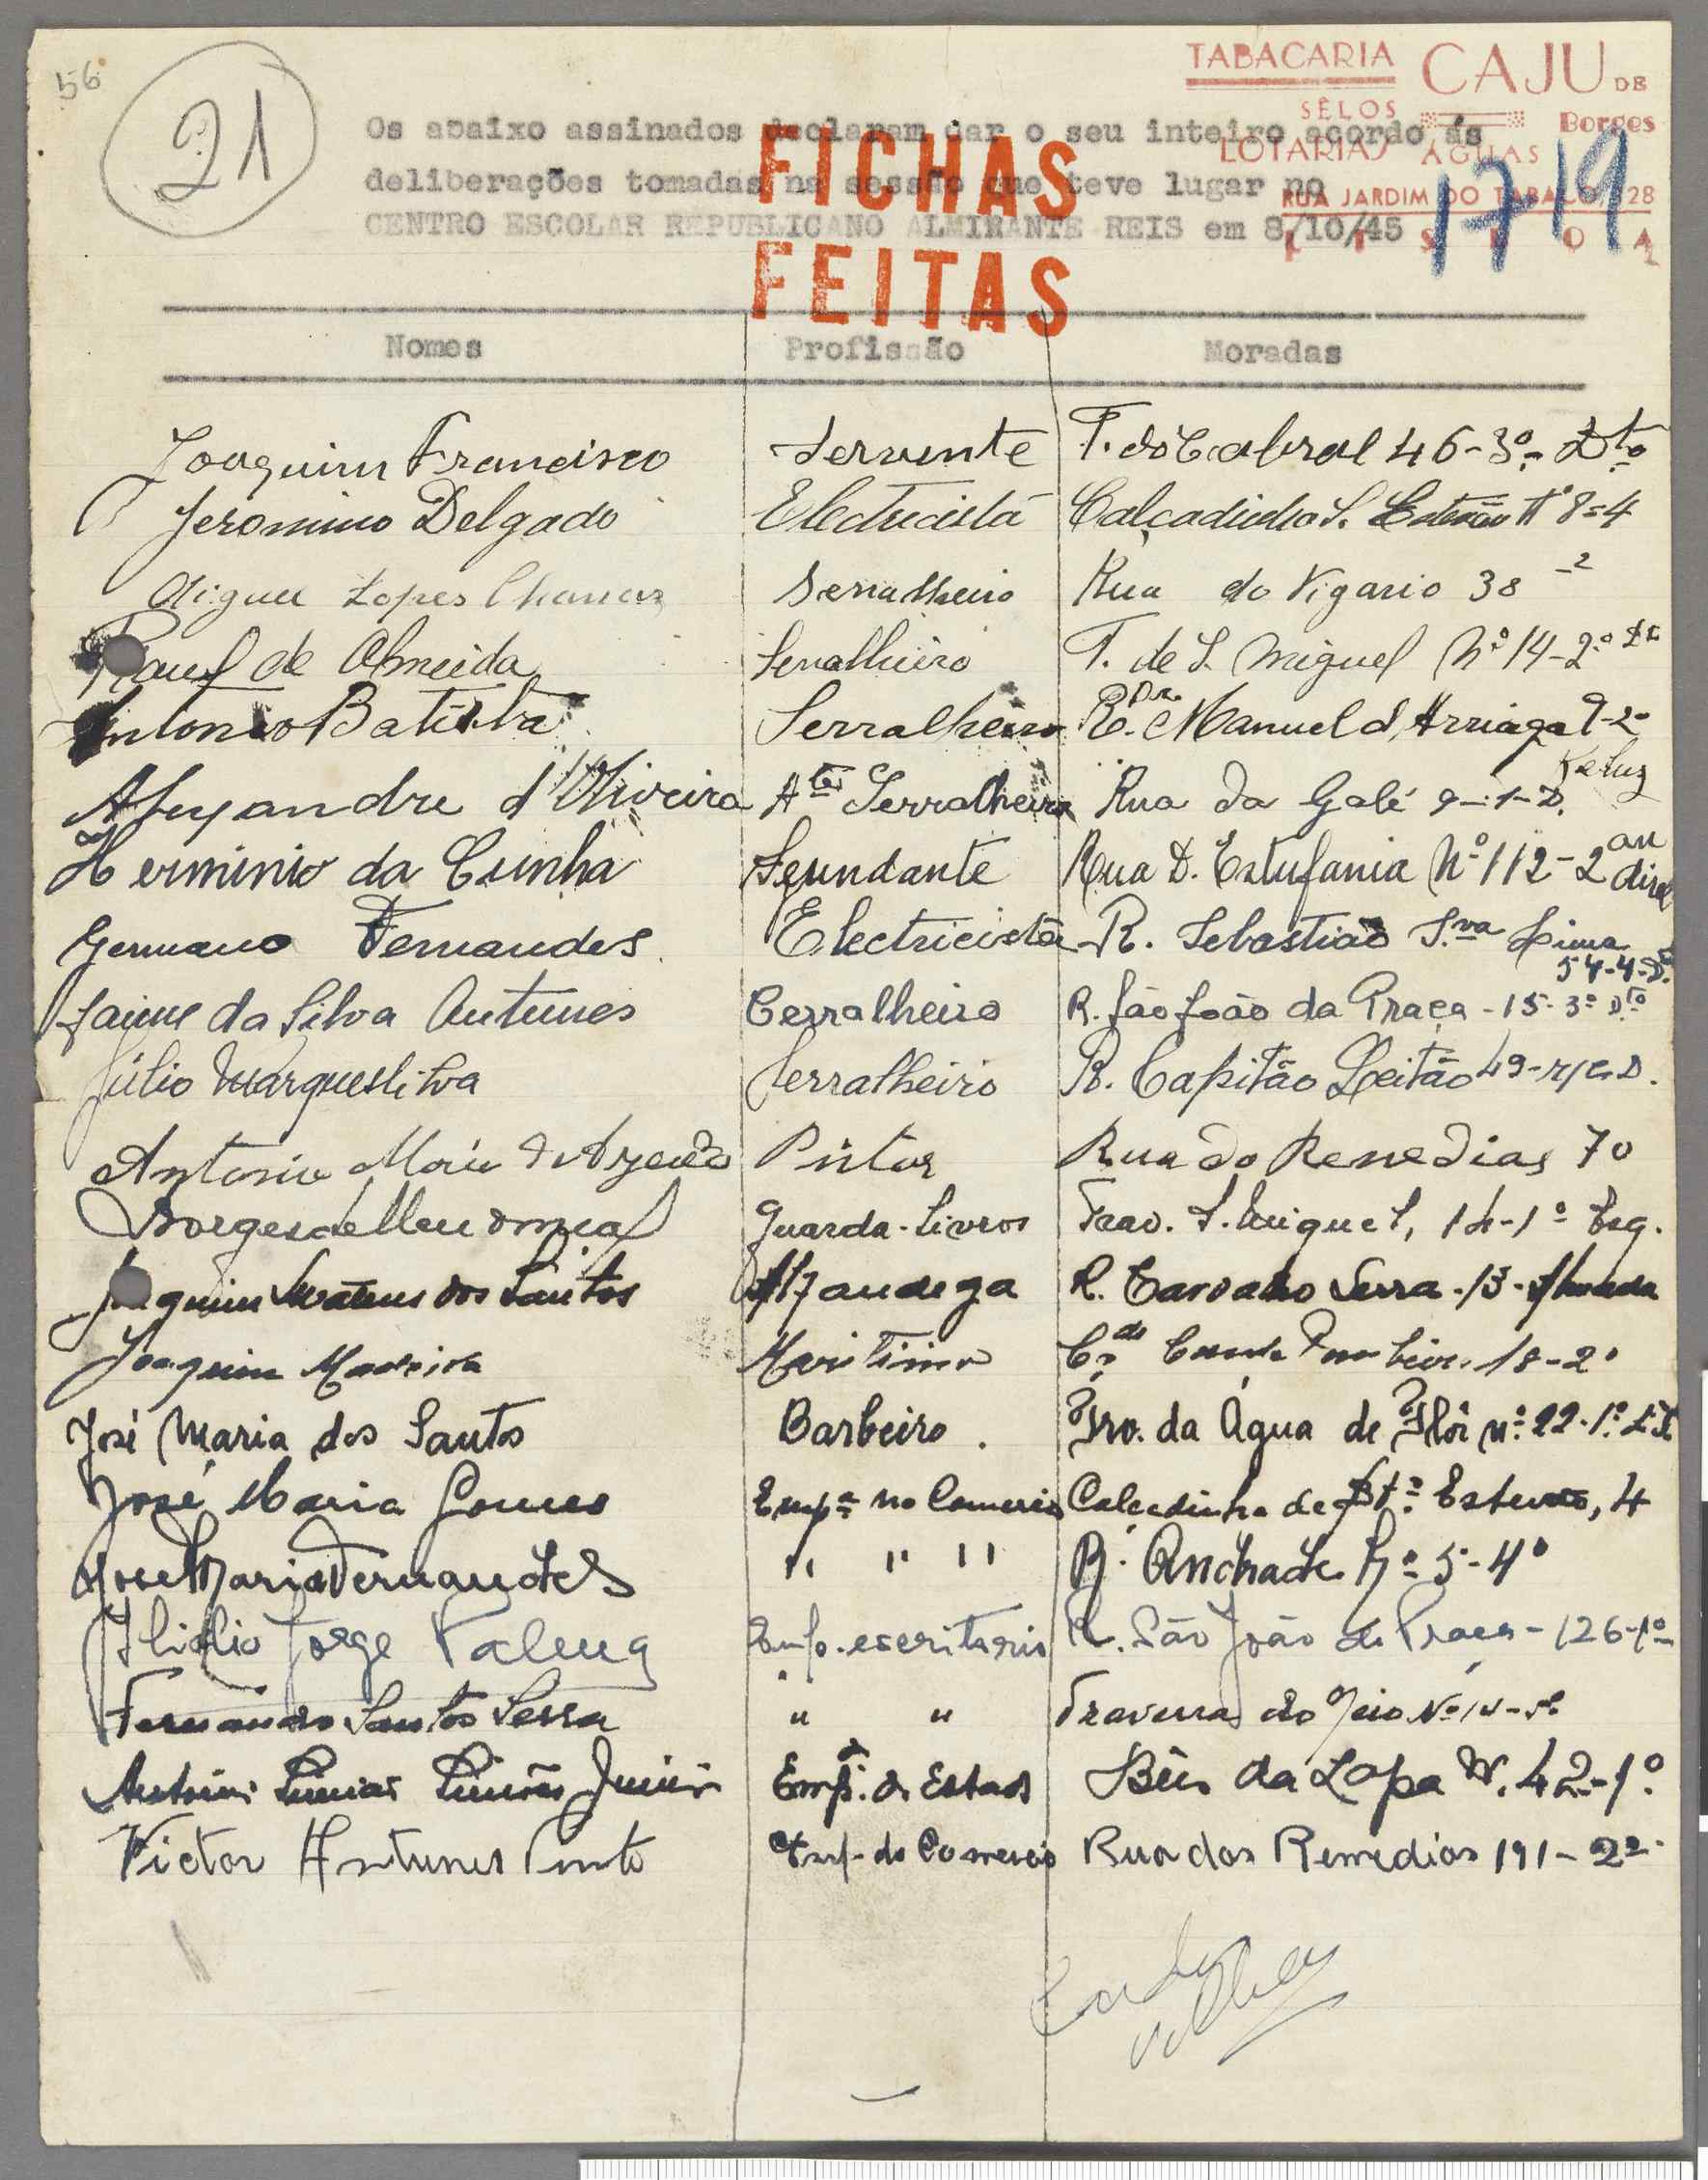 56
21
TABACARIA CAJU DE
SÊLOS Borges
LOTARIAS ÁGUAS
RUA JARDIM DO TABACO, 28
LISBOA
1719
Os abaixo assinados declaram dar o seu inteiro acordo ás
deliberações tomadas na sessão que teve lugar no
CENTRO ESCOLAR REPUBLICANO ALMIRANTE REIS em 8/10/45
FICHAS
FEITAS
Nomes Profissão Moradas
Joaquim Francisco Servente T. do Cabral 46-3º- Dto
Jeronimo Delgado Electricista Calçadinha S. Estevão Nº 8=4
Lopes Serralheiro Rua do Vigario 38 -2
Raul de Almeida Serralheiro T. de S. Miguel Nº 14-2º
Antonio Batista Serralheiro R. Dr. Manuel d'Arriaga 9-2º
d'Oliveira Serralheiro Rua da Galé 9-1-D.
Herminio da Cunha Ajundante Rua D. Estufania Nº 112-2 an direi
Germano Fernandes Electricista R. Sebastião S.va Lima
54-4-D.
Jaime da Silva Antunes Cerralheiro R. São João da Praça - 15-3º Dto
Júlio Marques Silva Serralheiro R. Capitão Leitão 49-r/c D.
Antonio Pintor Rua do Remedias 70
Guarda-Livros Trav. S. Miguel, 14-1º Esq.
Joaquim Mateus dos Santos Alfandega R. Serra-13-Almada
Joaquim Maritimo 18-2º
José Maria dos Santos Barbeiro. Trv. da Água de Flôr nº 22-1º
José Maria Gomes Empº no Comercio Calçadinha de Stº Estevão, 4
José Maria Fernandes " " " R. Andrade Nº 5-4º
Ilidio Jorge Emp. escritorio R. São João da Praça - 126-1º
Fernando Santos Serra " " Travessa do
Junior Empº do Estado da Lapa N. 42-1º
Victor Antunes Pinto Emp. do Comercio Rua dos Remedios 191-2º